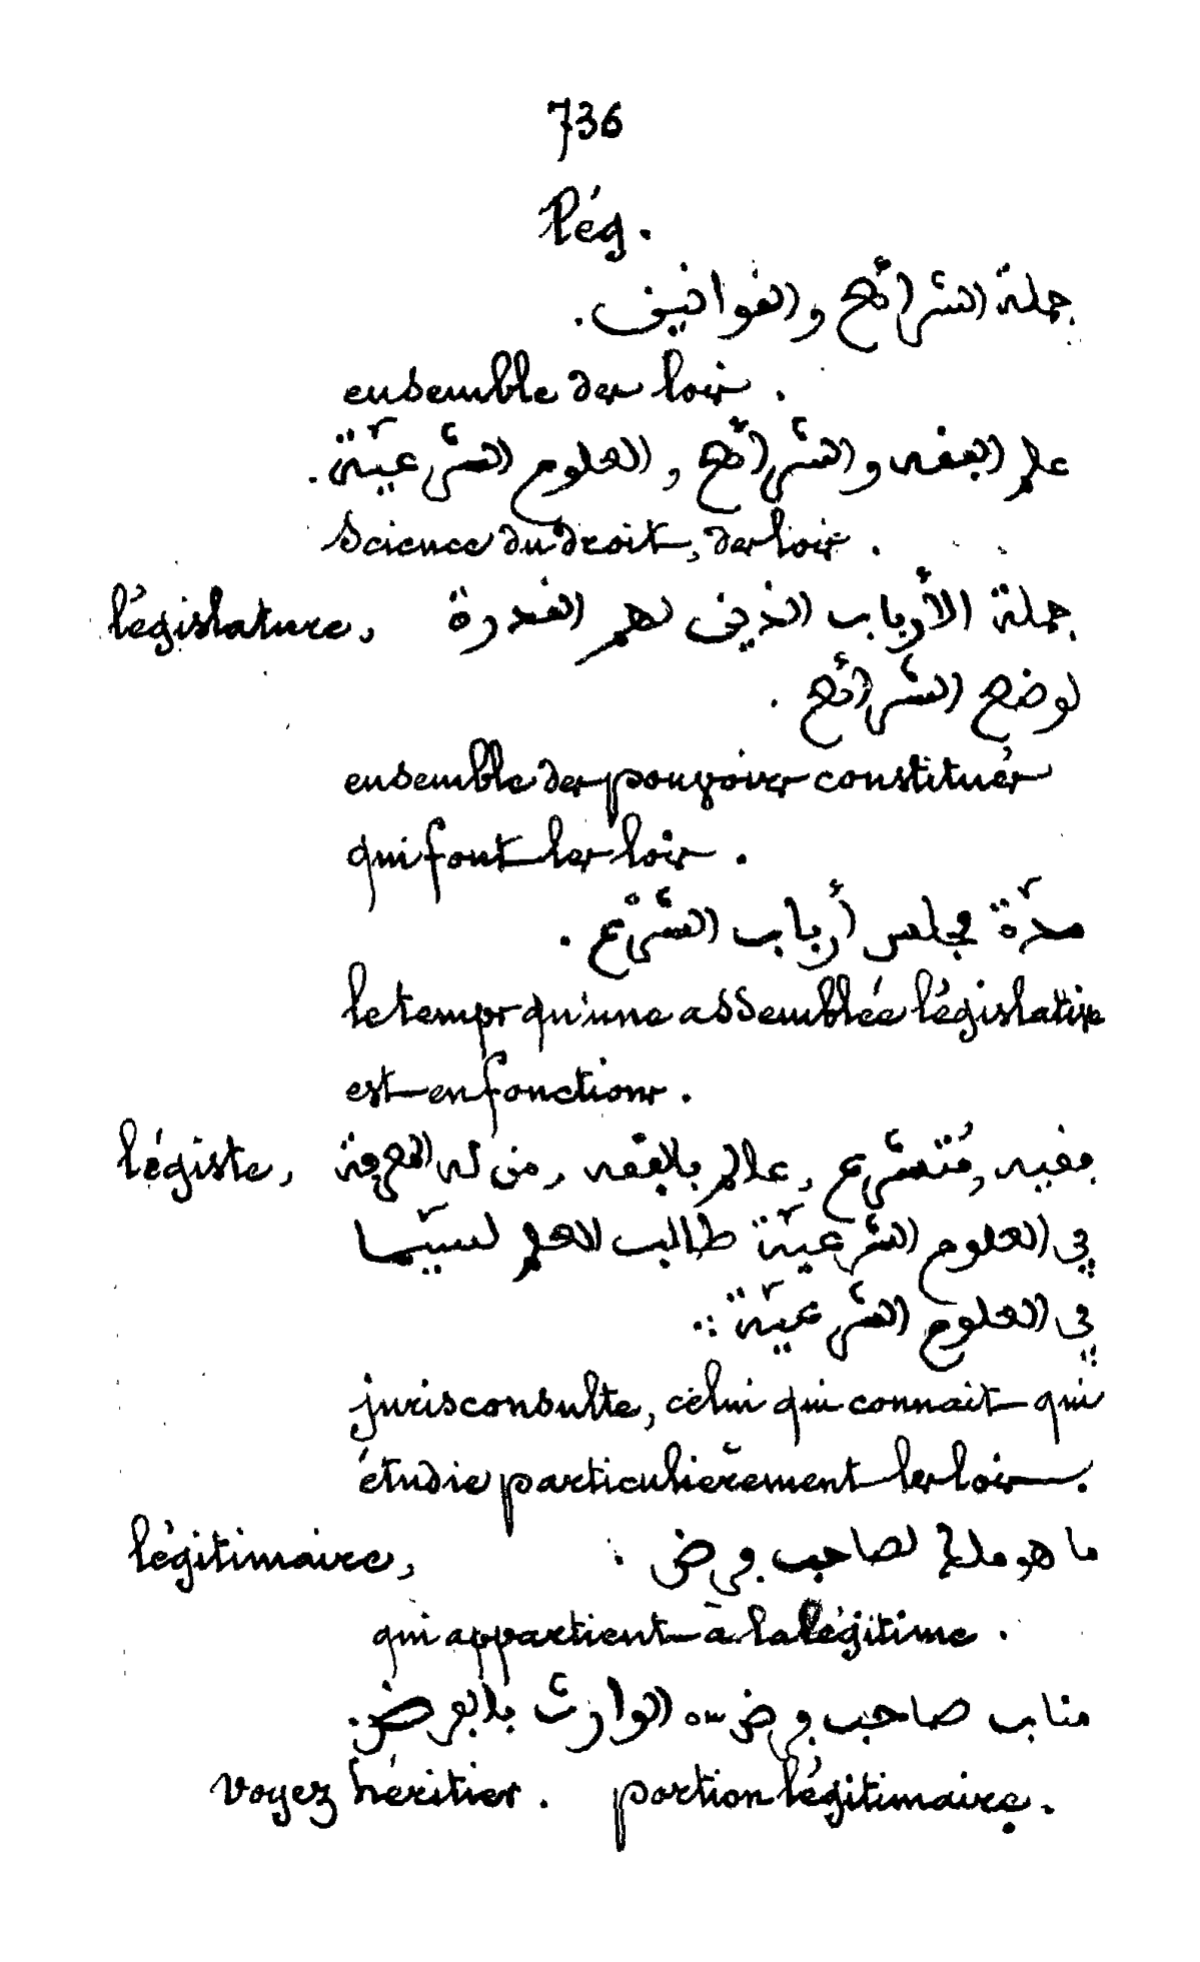 736
lég.
جملة الشرائع والقوانين.
ensemble des lois.
علم الفقه والشرائع والعلوم الشرعيّة.
Science du droit, des lois.
législature, جملة الأرباب الذين لهم القدرة
لوضع الشرائع.
ensemble des pouvoirs constitués
qui font les lois.
مدّة مجلس أرباب الشرْع.
le temps qu'une assemblée législative
est en fonctions.
légiste, فقيه, مُتشرع, عالم بالفقه, من له المعرفة
في العلوم الشرعيّة طالب العلم لسيّما
في العلوم الشرعيّة :.
jurisconsulte, celui qui connait qui
étudie particulièrement les lois.
légitimaire, ما هو ملح لصاحب فرض.
qui appartient à la légitime.
مناب صاحب فرض ـه الوارث بالفرض.
voyez héritier. portion légitimaire.